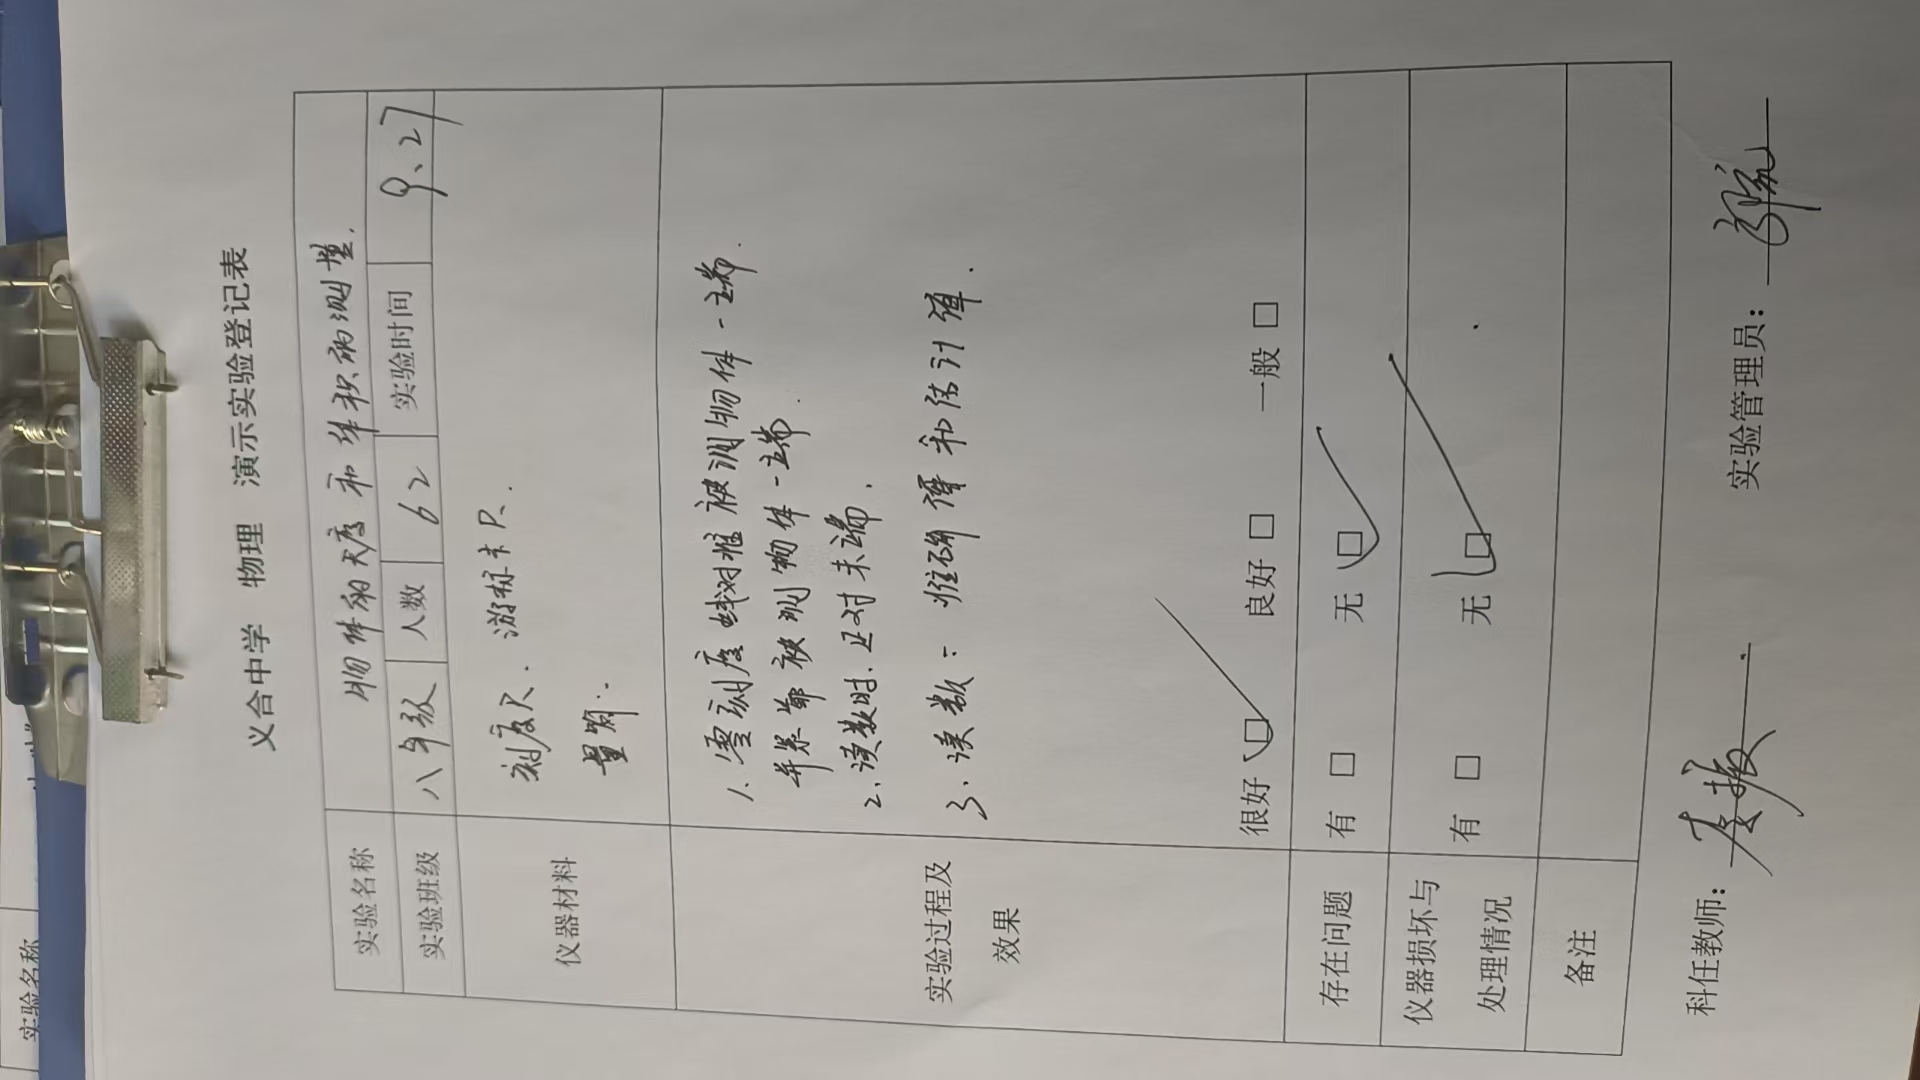 义合中学 物理 演示实验登记表
实验名称 物体的长度和体积的测量.
实验班级 八年级 人数 62 实验时间 9、27
仪器材料 刻度尺. 游标卡尺.
量筒.
实验过程及效果
1、零刻度线对准被测物体一端
并紧靠被测物体一端.
2、读数时.正对末端.
3、读数: 准确值和估计值.
很好 ☑ 良好 □ 一般 □
存在问题 有 □ 无 ☑
仪器损坏与处理情况 有 □ 无 ☑
备注
科任教师: 实验管理员:
实验名称